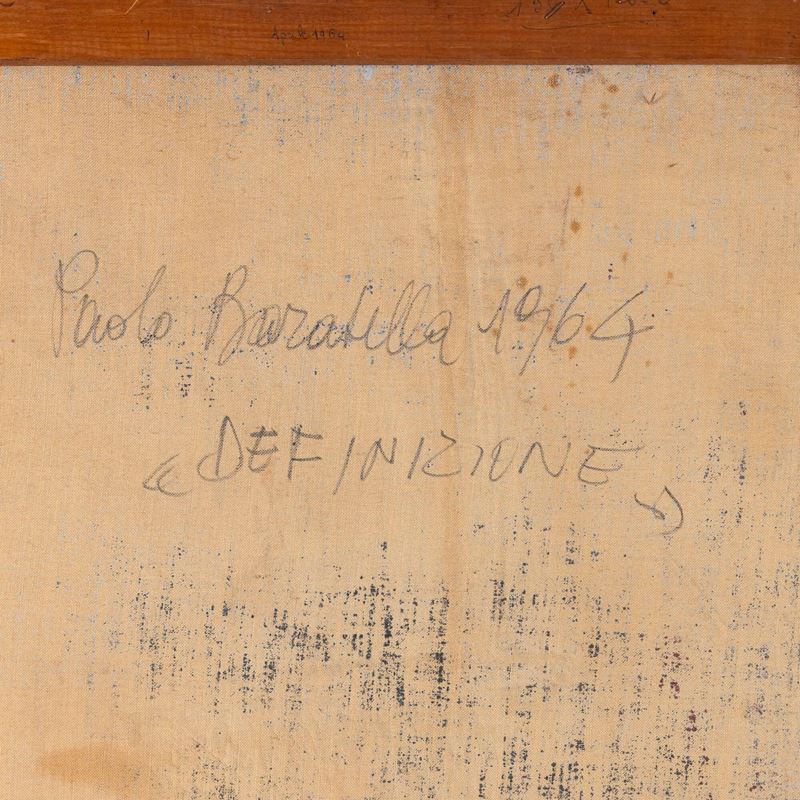 1964
Paolo Baratella 1964
« DEFINIZIONE »